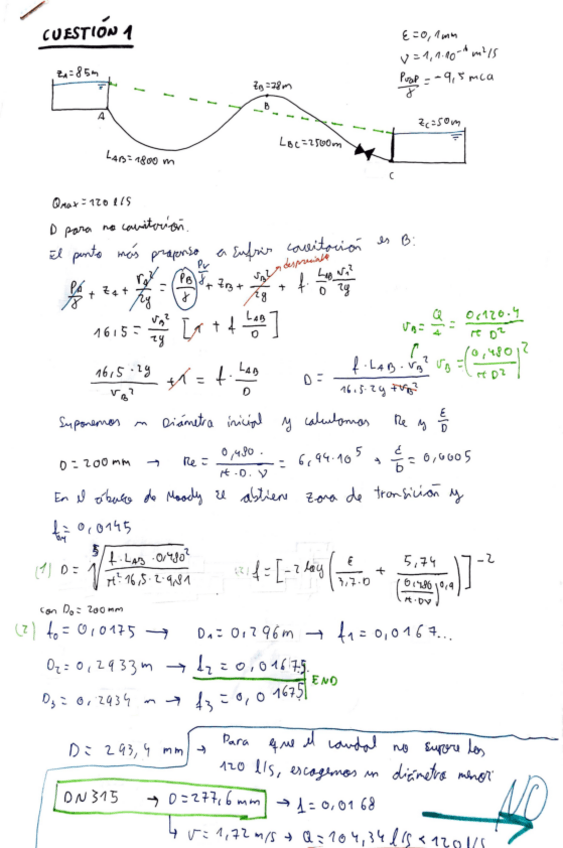 CUESTIÓN 1
ε=0,1mm
ν=1,1·10⁻⁶ m²/s
Pvap/γ = -9,5 mca
z_A=85m
z_B=78m
B
z_C=50m
A
L_AB=1800 m
L_BC=2500m
C
Qmax=120 l/s
D para no cavitación.
El punto más propenso a sufrir cavitación es B:
P_A/γ + z_A + v_A²/2g = P_B/γ + z_B + v_B²/2g + f · L_AB/D · v_B²/2g
Pv/γ
despreciable
16,5 = v_B²/2g [1 + f L_AB/D]
v_B = Q/A = 0,120·4/π D²
16,5·2g/v_B² + 1 = f · L_AB/D
D = f·L_AB·v_B²/16,5·2g+v_B²
v_B = (0,480/π D²)²
Suponemos un Diámetro inicial y calculamos Re y ε/D
D=200mm → Re = 0,480/π·D·ν = 6,94·10⁵, ε/D = 0,0005
En el ábaco de Moody se obtiene zona de transición y
f = 0,0145
(1) D = ⁵√(f·L_AB·0,480²/π²·16,5·2·9,81)
(2) f = [-2 log (ε/3,7·D + 5,74/(0,480/π·Dν)^0,9)]⁻²
con D₀=200mm
(2) f₀ = 0,0175 → D₁=0,296m → f₁=0,0167...
D₂=0,2933m → f₂ = 0,01675
END
D₃=0,2934 m → f₃ = 0,01675
D= 293,4 mm → Para que el caudal no supere los
120 l/s, escogemos un diámetro menor
DN315 → D=277,6mm → f=0,0168
NO
↳ v=1,72m/s → Q=104,34 l/s < 120 l/s